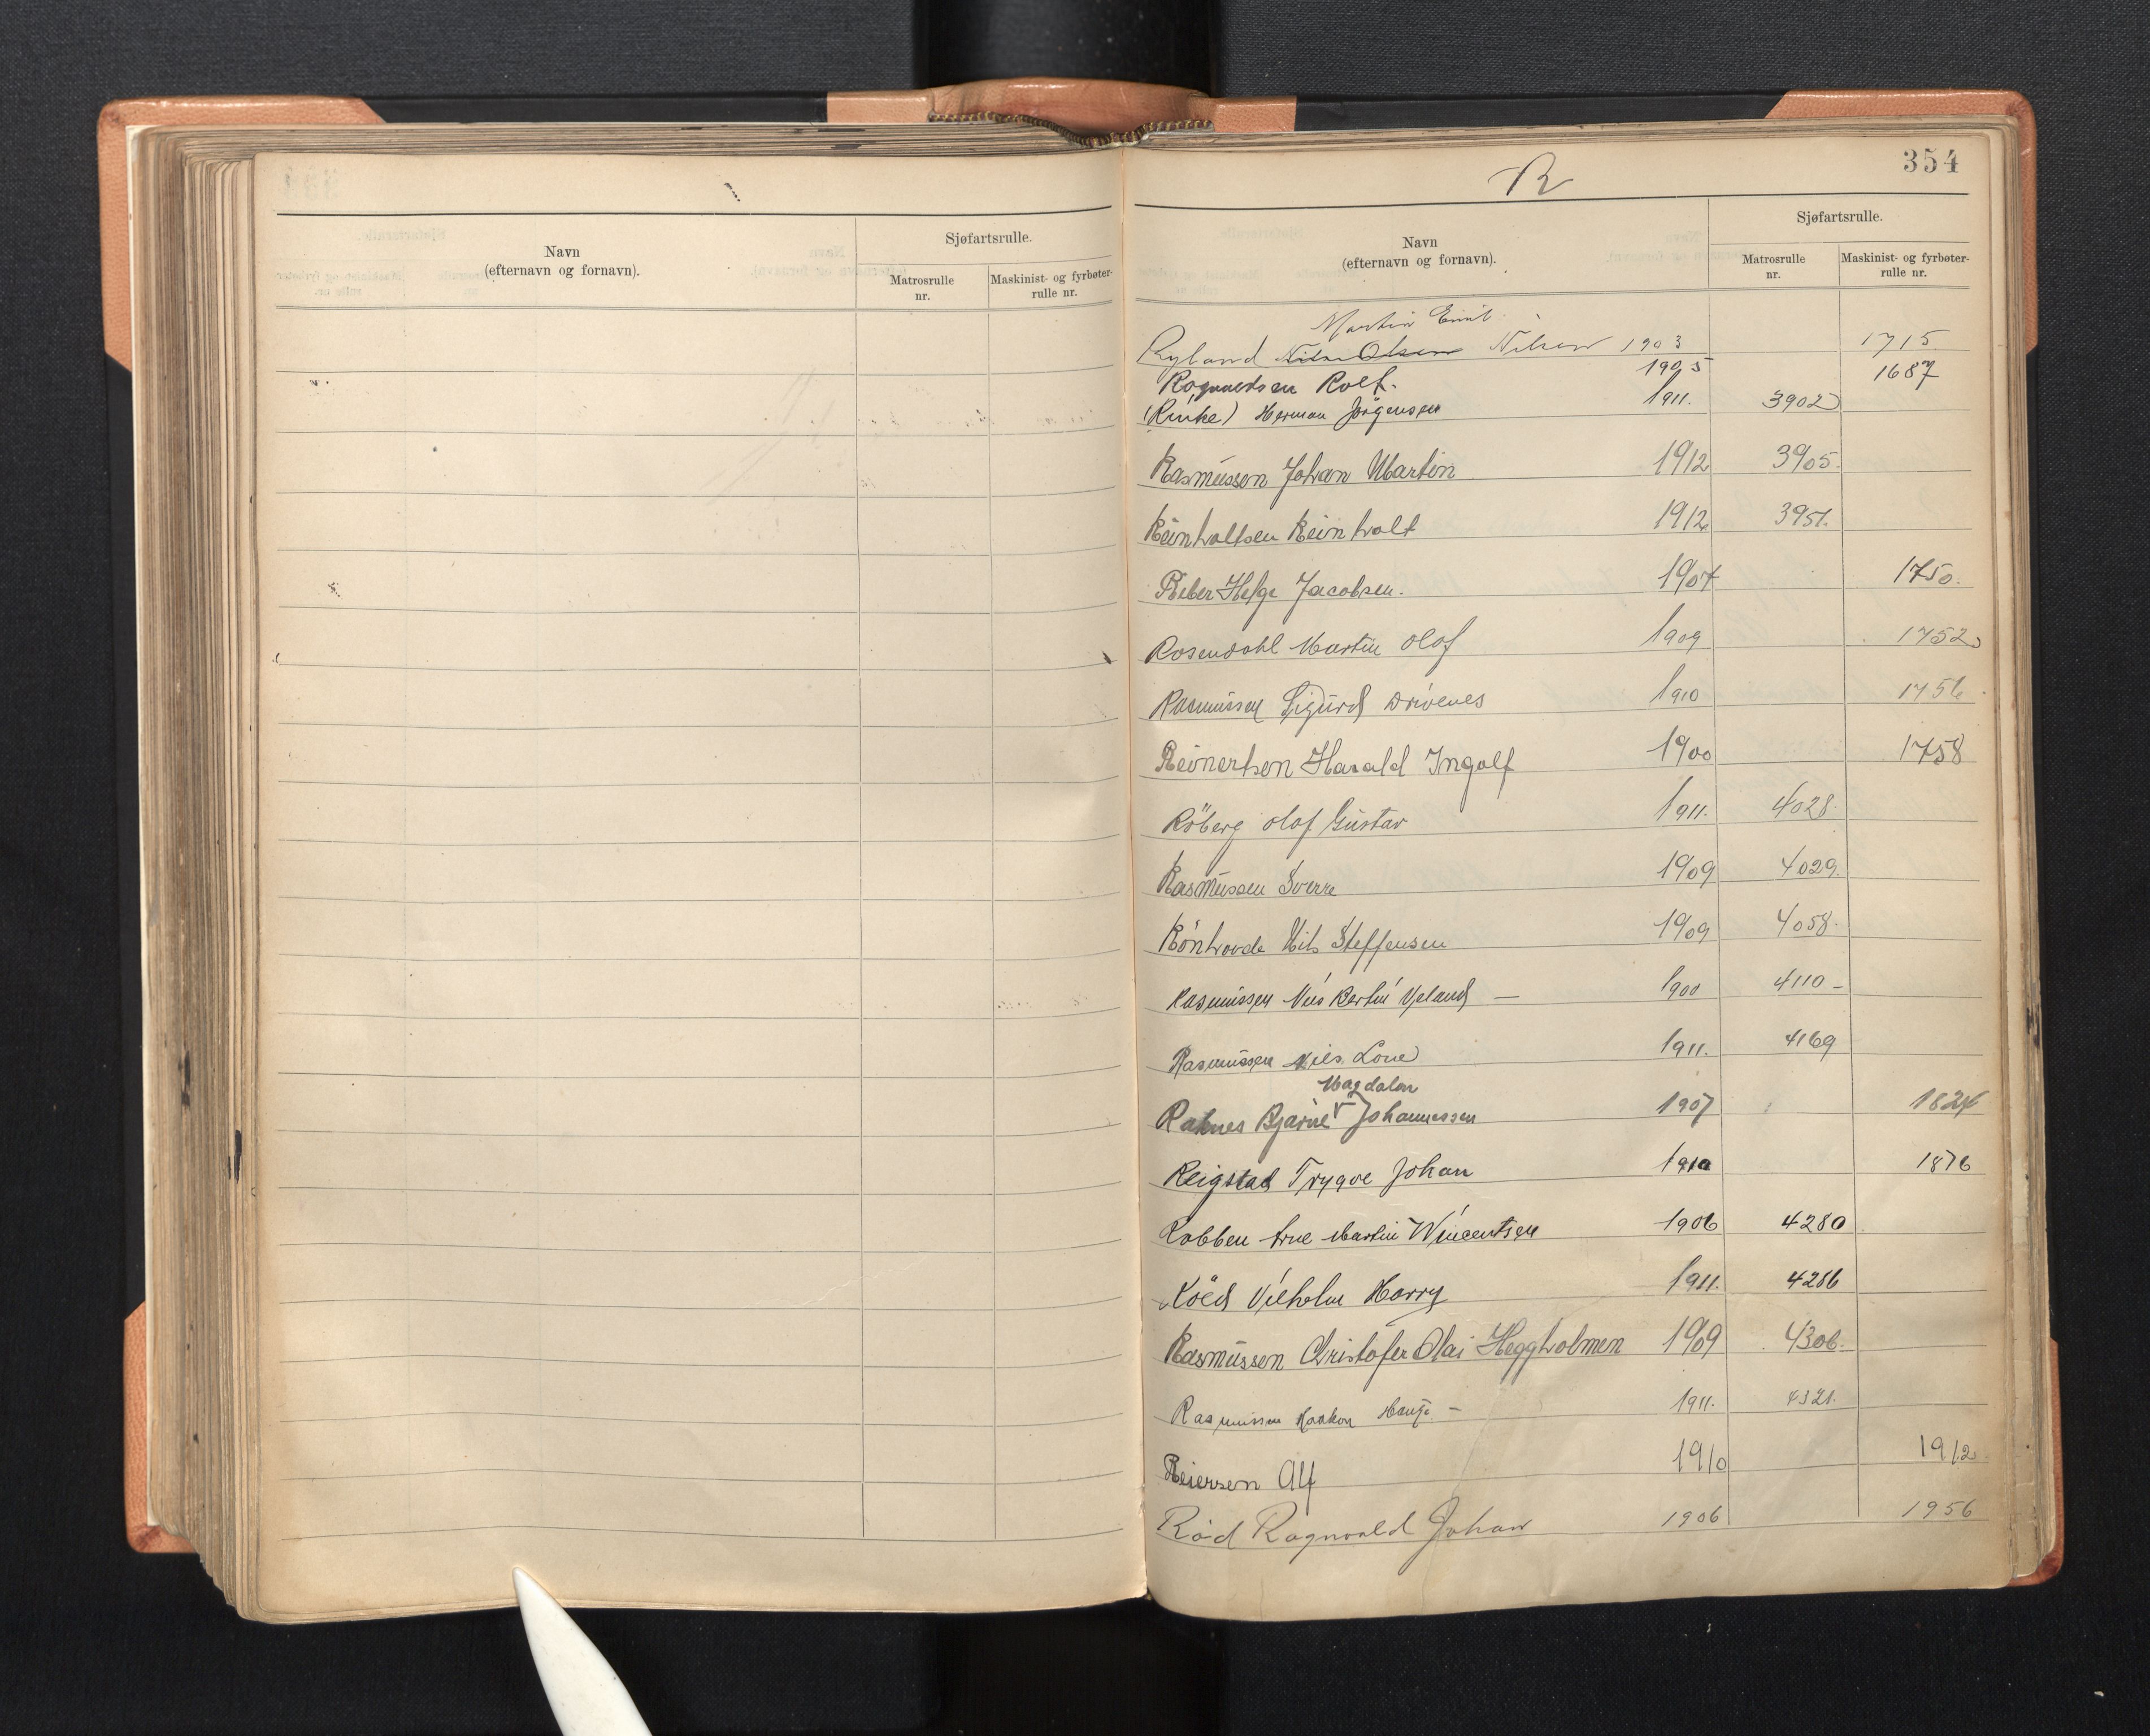 Navn
(efternavn og fornavn).
Sjøfartsrulle.
Matrosrulle
nr.
Maskinist- og fyrbøter-
rulle nr.
R
354
Navn
(efternavn og fornavn).
Sjøfartsrulle.
Matrosrulle
nr.
Maskinist- og fyrbøter-
rulle nr.
Martin Emil
Ryland Nils Olsen Nilsen 1903 1715
Ragnvaldsen Rolf. 1905 1687
(Rinke) Herman Jörgensen 1911. 3902
Rasmussen Johan Martin 1912 3905.
Reinholtsen Reinholt 1912 3951.
Reber Helge Jacobsen. 1907 1750.
Rosendahl Martin Olof 1909 1752
Rasmussen Sigurd Drivenes 1910 1756
Reinertsen Harald Ingolf 1900 1758
Röberg Olof Gustav 1911. 4028.
Rasmussen Sverre 1909 4029.
Rönhovde Nils Steffensen 1909 4058.
Rasmussen Nils Bertin — 1900 4110 -
Rasmussen Nils 1911. 4169
Magdalon
Raknes Bjarne Johannessen 1907 1824
Reigstad Trygve Johan 1910 1876
Robben Arne Martin Wincentsen 1906 4280
Röed Vilhelm Harry 1911. 4286
Rasmussen Christofer Olai Heggholmen 1909 4306.
Rasmussen Haakon Hauge - 1911. 4321.
Reiersen Alf 1910 1912
Röd Ragnvald Johan 1906 1956